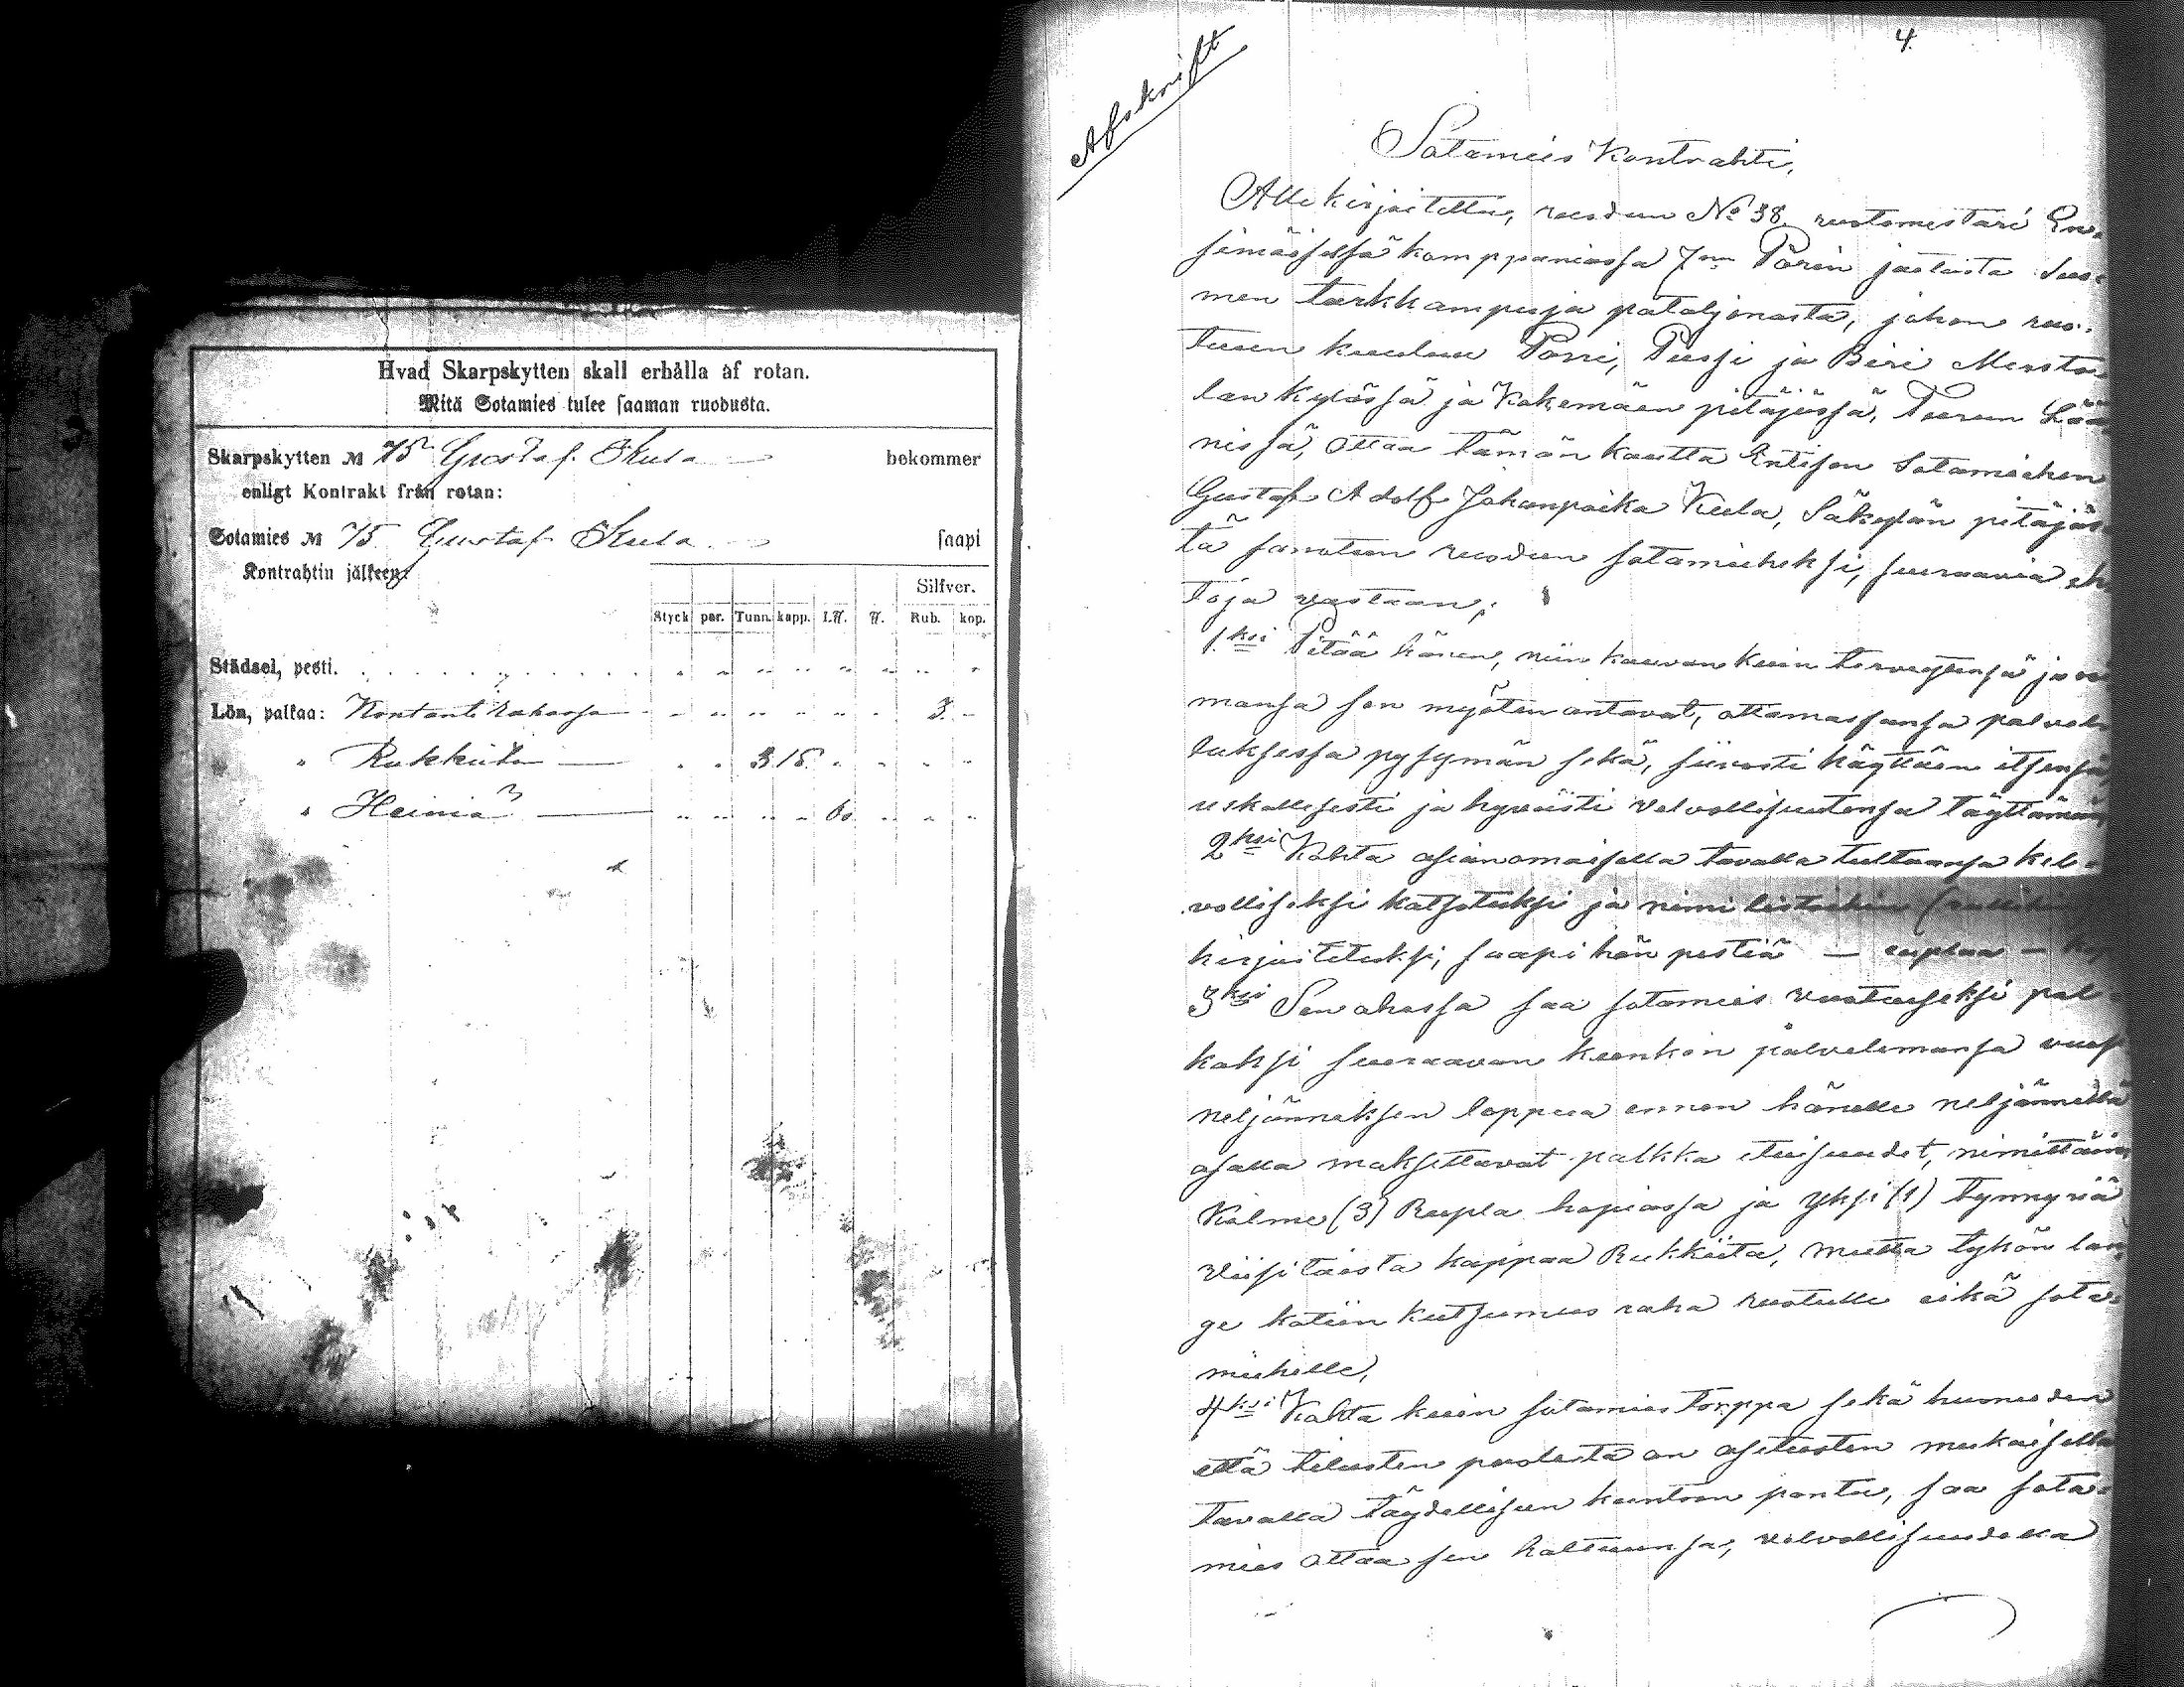 Hvad Skarpskytten skall erhålla af rotan.
Mitä Sotamies tulee saaman ruodusta.
Skarpskytten № 75 Gustaf Kula bekommer
enligt Kontrakt från rotan:
Sotamies № 75. Gustaf Kula saapi
Kontrahtin jälkeen:
Silfver.
Styck par. Tunn. kapp. L℔. ℔. Rub. kop.
Städsel, pesti.
Lön, palkaa: Kontanti Rahassa 3. -
" Rukkiita 3 15.
" Heiniä 60
4.
Afskrift
Sotamies Kontrahti,
Alle kirjoitettu, ruodun No 38 ruotomestari En-
simäisessä komppaniassa 7:nn Porin jaoista Suo-
men tarkkampuja pataljonasta, johon ruo-
tuun kuuluu Porri, Pussi ja Biri Mersto-
lan kylässä ja Kokemäen pitäjässä, Turun Lää
nissä, ottaa tämän kautta Entisen Sotamiehen
Gustaf Adolf Johanpoika Kula, Säkylän pitäjäs
tä sanotun ruodun sotamieheksi, seuraavia eh
toja vastaan;
1.ksi Pitää hänen, niin kauvan kuin terveytensä ja voi
mansa sen myöten antavat, ottamassansa palvel
luksessa pysymän sekä, siivosti käyttäen itsensä,
uskollisesti ja hyvästi velvollisuutensa täyttämän,
2ksi Kohta asianomaisella tavalla tultuansa kel-
volliseksi katsotuksi ja nimi listoihin (rullihin
kirjoitetuksi, saapi hän pestiä — ruplaa —
3ksi Sen ohessa saa sotamies vuotuiseksi pal-
kaksi seuraavan kunkin palvelemansa vuos
neljänneksen loppua ennen hänelle neljännellä
osalla maksettavat palkka etuisuudet, nimittäin
Kolme (3) Rupla hopiassa ja yksi (1) tynnyriä
viisitoista kappaa Rukkiita, mutta tykön lan-
ge kotiin kutsumus raha ruotulle eikä sota-
miehelle,
4ksi Kohta kuin sotamies torppa sekä huoneiden
että tilusten puolesta on asetusten mukaisella
tavalla täydelliseen kuntoon pantu, saa sota-
mies ottaa sen haltuunsa, velvollisuudella